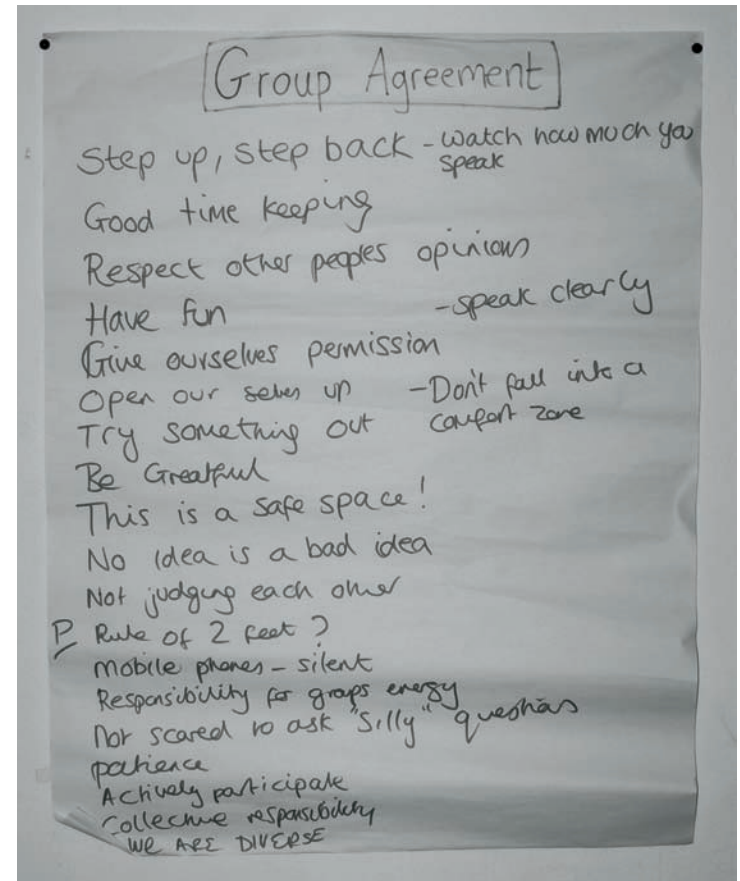 Group Agreement
Step up, step back - watch how much you
speak
Good time keeping
Respect other peoples opinions
Have fun - speak clearly
Give ourselves permission
Open our selves up - Don't fall into a
Try something out comfort zone
Be Greatful
This is a safe space!
No idea is a bad idea
Not judging each other
P Rule of 2 feet ?
mobile phones - silent
Responsibility for groups energy
Not scared to ask "silly" questions
patience
Actively participate
Collective responsibility
WE ARE DIVERSE